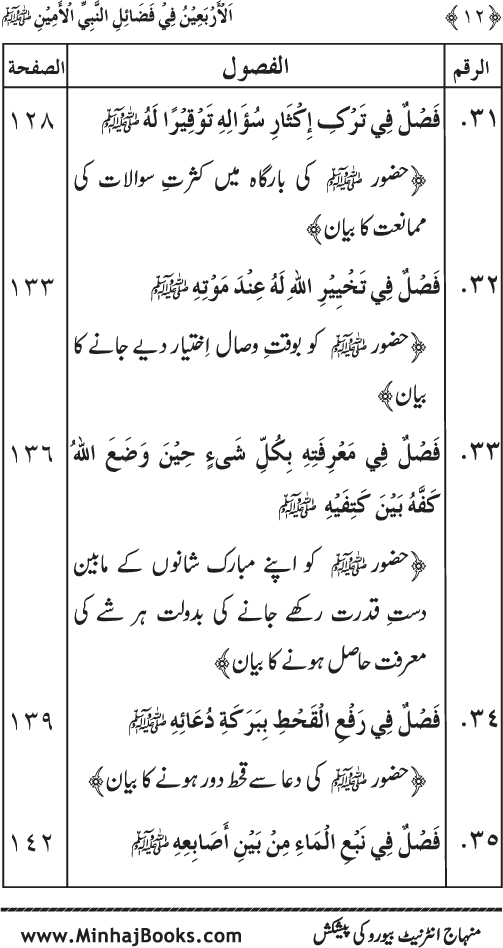 ﴿١٢﴾ اَلْأَرْبَعِيْنُ فِي فَضَائِلِ النَّبِيِّ الْأَمِيْنِ ﷺ
الرقم الفصول الصفحة
٣١. فَصْلٌ فِي تَرْكِ إِكْثَارِ سُؤَالِهِ تَوْقِيْرًا لَهُ ﷺ ١٢٨
﴿حضور ﷺ کی بارگاہ میں کثرتِ سوالات کی
ممانعت کا بیان﴾
٣٢. فَصْلٌ فِي تَخْيِيْرِ اللهِ لَهُ عِنْدَ مَوْتِهِ ﷺ ١٣٣
﴿حضور ﷺ کو بوقتِ وصال اِختیار دیے جانے کا
بیان﴾
٣٣. فَصْلٌ فِي مَعْرِفَتِهِ بِكُلِّ شَىءٍ حِيْنَ وَضَعَ اللهُ ١٣٦
كَفَّهُ بَيْنَ كَتِفَيْهِ ﷺ
﴿حضور ﷺ کو اپنے مبارک شانوں کے مابین
دستِ قدرت رکھے جانے کی بدولت ہر شے کی
معرفت حاصل ہونے کا بیان﴾
٣٤. فَصْلٌ فِي رَفْعِ الْقَحْطِ بِبَرَكَةِ دُعَائِهِ ﷺ ١٣٩
﴿حضور ﷺ کی دعا سے قحط دور ہونے کا بیان﴾
٣٥. فَصْلٌ فِي نَبْعِ الْمَاءِ مِنْ بَيْنِ أَصَابِعِهِ ﷺ ١٤٢
منہاج انٹرنیٹ بیورو کی پیشکش www.MinhajBooks.com